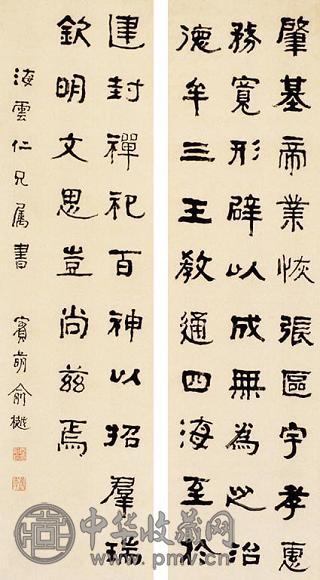 肇基帝業恢張區宇孝惠
務寬形辟以成無為之治
德牟三王教通四海至於
建封禪祀百神以招羣瑞
欽明文思豈尚茲焉
海雲仁兄屬書 賓萌俞樾
中华收藏网
www.pmv.cn